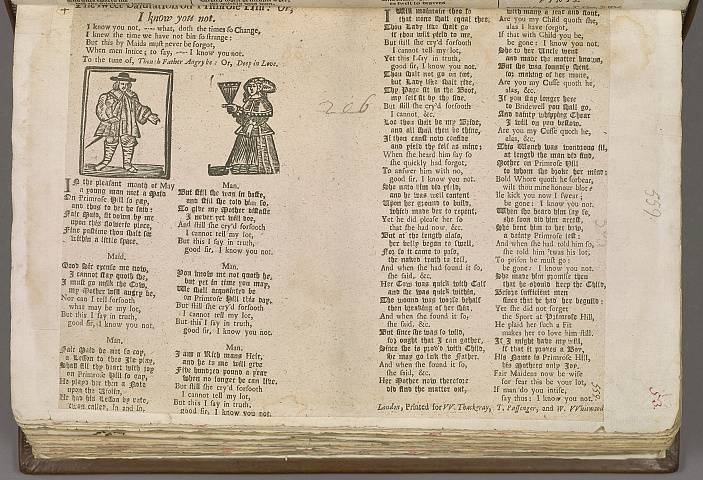 The sweet Salutation on Primrose Hill: Or,
I know you not.
I know you not, — what, doth the times so Change,
I knew the time we have not bin so strange:
But this by Maids must never be forgot,
When men Intice; to say, — I know you not.
To the tune of, Though Father Angry be: Or, Deep in Love.
206
IN the pleasant month of May
a young man met a Maid
On Primrose Hill to say,
and thus to her he said:
Fair Maid, sit down by me
upon this flowerie place,
Fine pastime thou shalt see
within a little space.
Maid.
Good Sir excuse me now,
I cannot stay quoth she,
I must go milk the Cow,
my Mother will angry be,
Nor can I tell forsooth
what may be my lot,
But this I say in truth,
good sir, I know you not.
Man.
Fair Maid be not so coy,
a Lesson to thee Ile play,
Shall fill thy heart with joy
on Primrose Hill to day,
He plays her then a Note
upon the Violin,
He had his Lesson by rote,
Man.
But still she was in haste,
and still she told him so,
To give my Mother distaste
I never yet will doe,
And still she cry'd forsooth
I cannot tell my lot,
But this I say in truth,
good sir, I know you not.
Man.
You know me not quoth he,
but yet in time you may,
We shall acquainted be
on Primrose Hill this day,
But still she cry'd forsooth
I cannot tell my lot,
But this I say in truth,
good sir, I know you not.
Man.
I am a Rich mans Heir,
and he to me will give
Five hundred pound a year
when no longer he can live.
But still she cry'd forsooth
I cannot tell my lot,
But this I say in truth,
good sir, I know you not.
I Will maintain thee so
that none shall equal thee,
Thou Lady like shall go
if thou wilt yield to me,
But still she cry'd forsooth
I cannot tell my lot,
Yet this I say in truth,
good sir, I know you not.
Thou shalt not go on foot,
but Lady like shalt ride,
Thy Page sit in the Boot,
my self sit by thy side.
But still she cry'd forsooth
I cannot, &c.
Loe thou shalt be my Bride,
and all shall then be thine,
If thou canst now confide
and yield thy self as mine;
When she heard him say so
she quickly had forgot,
To answer him with no,
good sir, I know you not.
She unto him did yield,
and he was well content
Upon her ground to build,
which made her to repent,
Yet he did please her so
that she had now, &c.
But at the length alass,
her belly began to swell,
For so it came to pass,
the naked truth to tell,
And when she had found it so,
she said, &c.
Her Cow was quick with Calf
and she was quick within,
The wound was worse behalf
then breaking of her shin,
And when she found it so,
she said, &c.
But since she was so wild,
for ought that I can gather,
Since she is prov'd with Child,
she may go lick the Father.
And when she found it so,
she said, &c.
Her Mother now therefore
did find the matter out,
with many a tear and stout.
Are you my Child quoth she,
alas I have forgot,
If that with Child you be,
be gone: I know you not.
She to her Uncle went
and made the matter known,
But she was soundly shent
for making of her mone,
Are you my Cusse quoth he,
alas, &c.
If you stay longer here
to Bridewell you shall go,
And dainty whipping Chear
I will on you bestow.
Are you my Cusse quoth he,
alas, &c.
This Wench was wondrous ill,
at length the man did find,
Mother on Primrose Hill
to whom she broke her mind;
Bold Whore quoth he forbear,
Ile kick you now I swear;
be gone: I know you not.
When she heard him say so,
she soon did him arrest,
She sent him to her brow,
a dainty Primrose jest:
And when she had told him so,
she told him 'twas his lot,
To prison he must go:
be gone: I know you not.
She made him promise then
that he should keep the Child,
Before sufficient men
since that he had her beguild:
Yet she did not forget
the Sport at Primrose Hill,
He plaid her such a Fit
makes her to love him still.
If I might have my will,
if that it proves a Boy,
His Name is Primrose Hill,
his Mothers only Joy.
Fair Maidens now be wise
for fear this be your lot,
If man do you intise,
say thus: I know you not.
London, Printed for W. Thackeray, T. Passenger, and W. Whitwood
559
559.
553